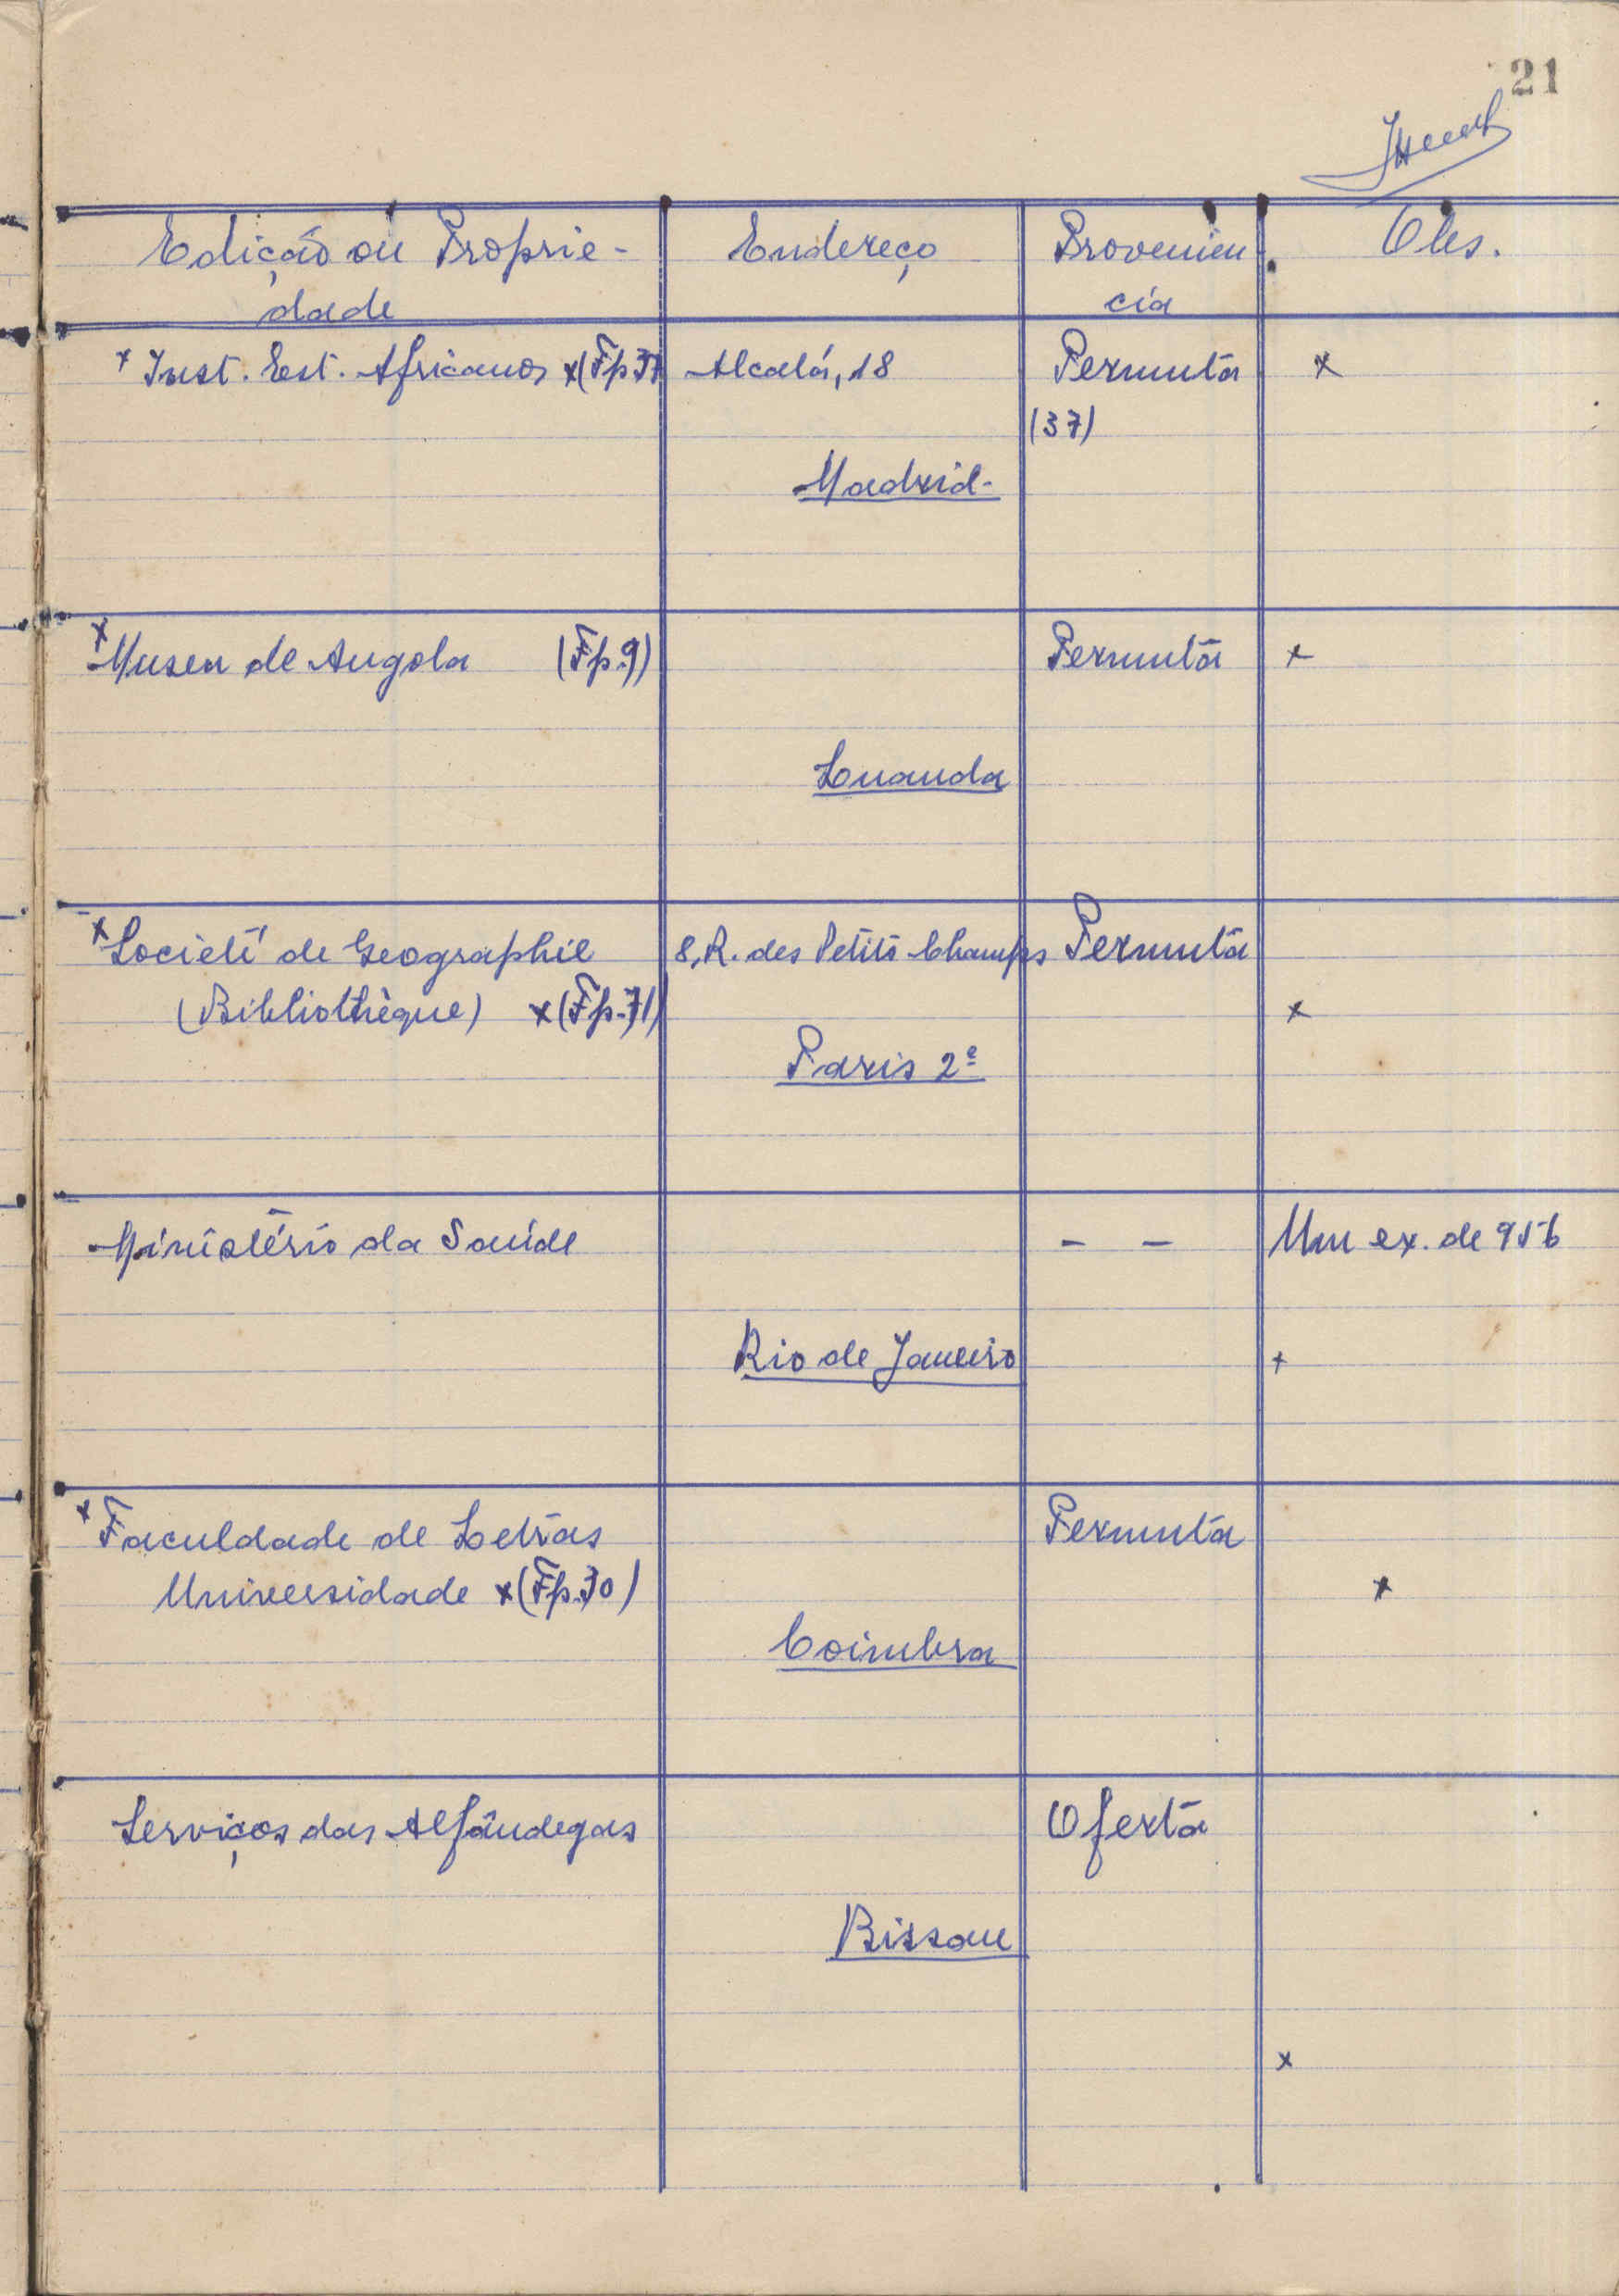 21
Edição ou Proprie- Endereço Proveniên Obs.
dade cia
x Inst. Est. Africanos x (Fp. Alcalá, 18 Permuta x
(37)
Madrid-
x Museu de Angola (Fp.9) Permuta x
Luanda
x Societé de Geographie 8, R. des Petits Champs Permuta
(Bibliothèque) x (Fp.71) x
Paris 2e
Ministério da Saúde - - Um ex. de 956
Rio de Janeiro x
x Faculdade de Letras Permuta
Universidade x (Fp.70) x
Coimbra
Serviços das Alfândegas Oferta
Bissau
x